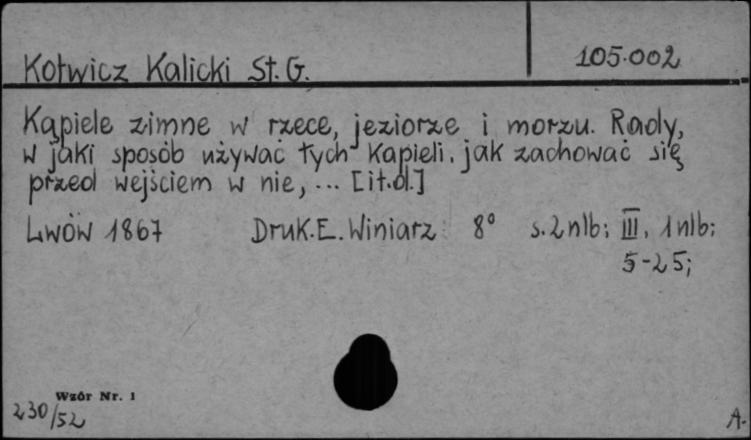 Kotwicz Kalicki St. G.
105.002
Kąpiele zimne w rzece, jeziorze i morzu. Rady,
w jaki sposób używać tych kąpieli, jak zachować się
przed wejściem w nie, ... [it.d.]
Lwów 1867 Druk. E. Winiarz 8° s. 2 nlb; III, 1 nlb;
5-25;
Wzór Nr. 1
230/52
A.